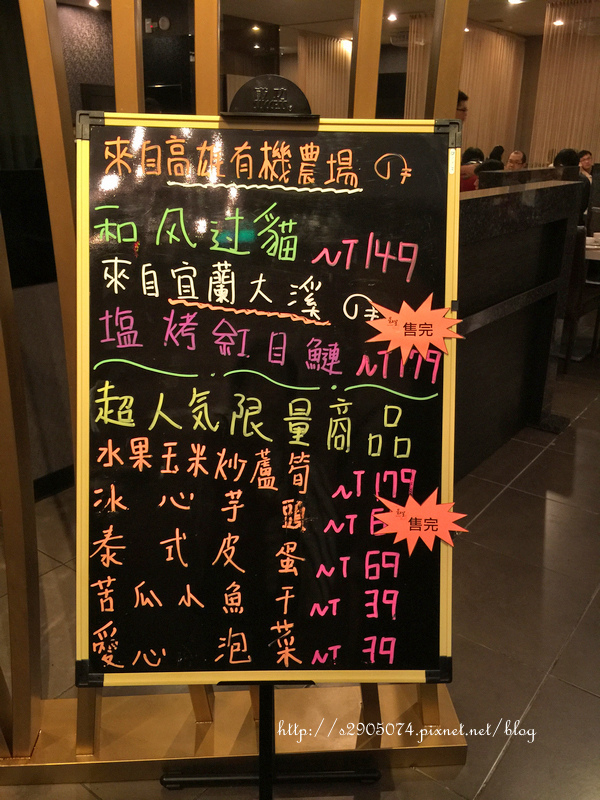 來自高雄有機農場の
和风过貓 NT149
來自宜蘭大溪の
塩烤紅目鰱 NT179
售完
超人気限量商品
水果玉米炒蘆筍 NT179
冰心芋頭 NT
售完
泰式皮蛋 NT 69
苦瓜小魚干 NT 39
愛心泡菜 NT 39
http://s2905074.pixnet.net/blog